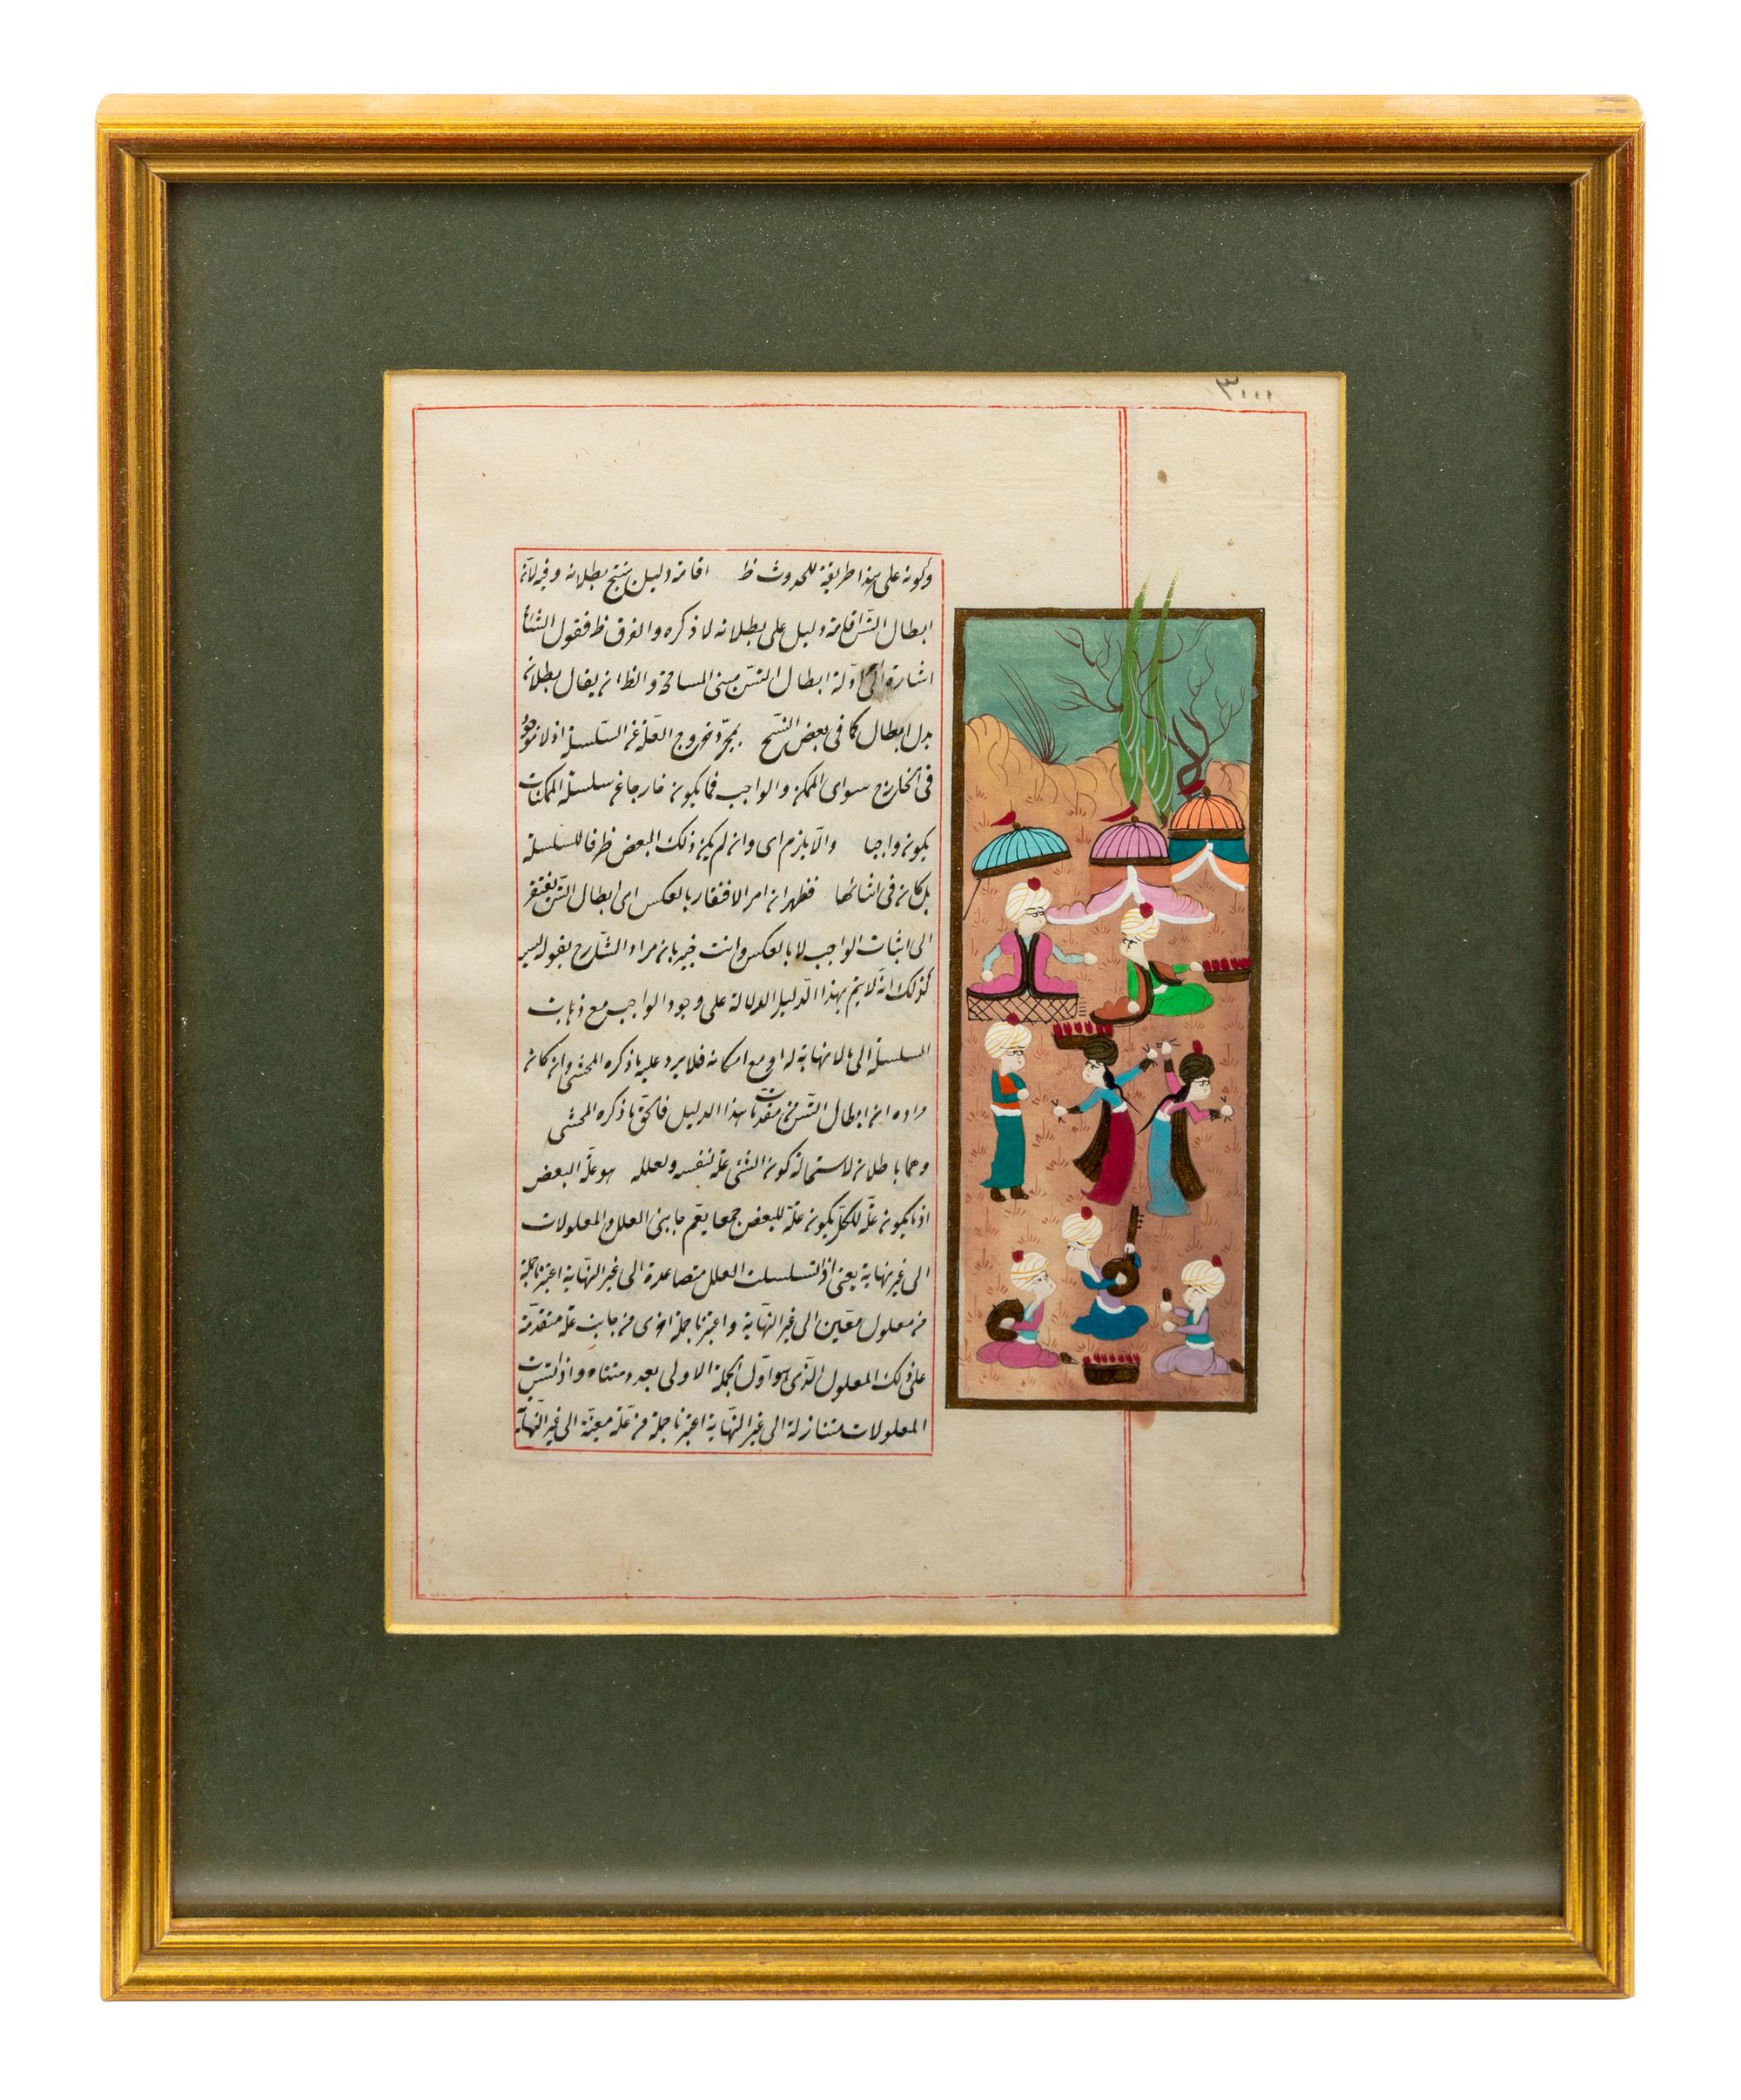 ٣٠٠٠
وكونه على هذا طريقة للحدوث ظ اقامة دليل ينتج بطلانه وفيه لانه
ابطال التس اقامة دليل على بطلانه لا ذكره والفرق ظ فقول الشا
اشارة الى ادلة ابطال التس مبنى المسامحة والظان يقال بطلان
بدل ابطال كما فى بعض النسخ بمجرد خروج العلة عن السلسلة اذ لا موجود
فى الخارج سواى الممكن والواجب فما يكون خارجا عن سلسلة الممكنات
يكون واجبا والا يلزم اى وان لم يكن ذلك البعض طرفا للسلسلة
بل كان فى اثنائها فظهر ان امر الافتقار بالعكس اى ابطال التس يفتقر
الى اثبات الواجب لا بالعكس وانت خبير بان مراد الشارح بقوله ليس
كذلك انه لا يتم بهذا الدليل الدلالة على وجود الواجب مع ذهاب
السلسلة الى ما لا نهاية له او مع امكانه فلا يرد عليه ما ذكره المحشى وان كان
مراده ان ابطال التس من مقدمات هذا الدليل فالحق ما ذكره المحشى
وهما باطلان لاستحالة كون الشئ علة لنفسه ولعلله هو علة البعض
اذ ما يكون علة للكل يكون علة للبعض جمعا يعم ما بين العلل والمعلولات
الى غير نهاية يعنى اذا تسلسلت العلل متصاعدة الى غير النهاية اعتبرنا جملة
من معلول معين الى غير النهاية واعتبرنا جملة اخرى من جانب علة متقدمة
على ذلك المعلول الذى هو اول الجملة الاولى بعدد متناه واذا تسلسلت
المعلولات متنازلة الى غير النهاية اعتبرنا جملة من علة معينة الى غير النهاية